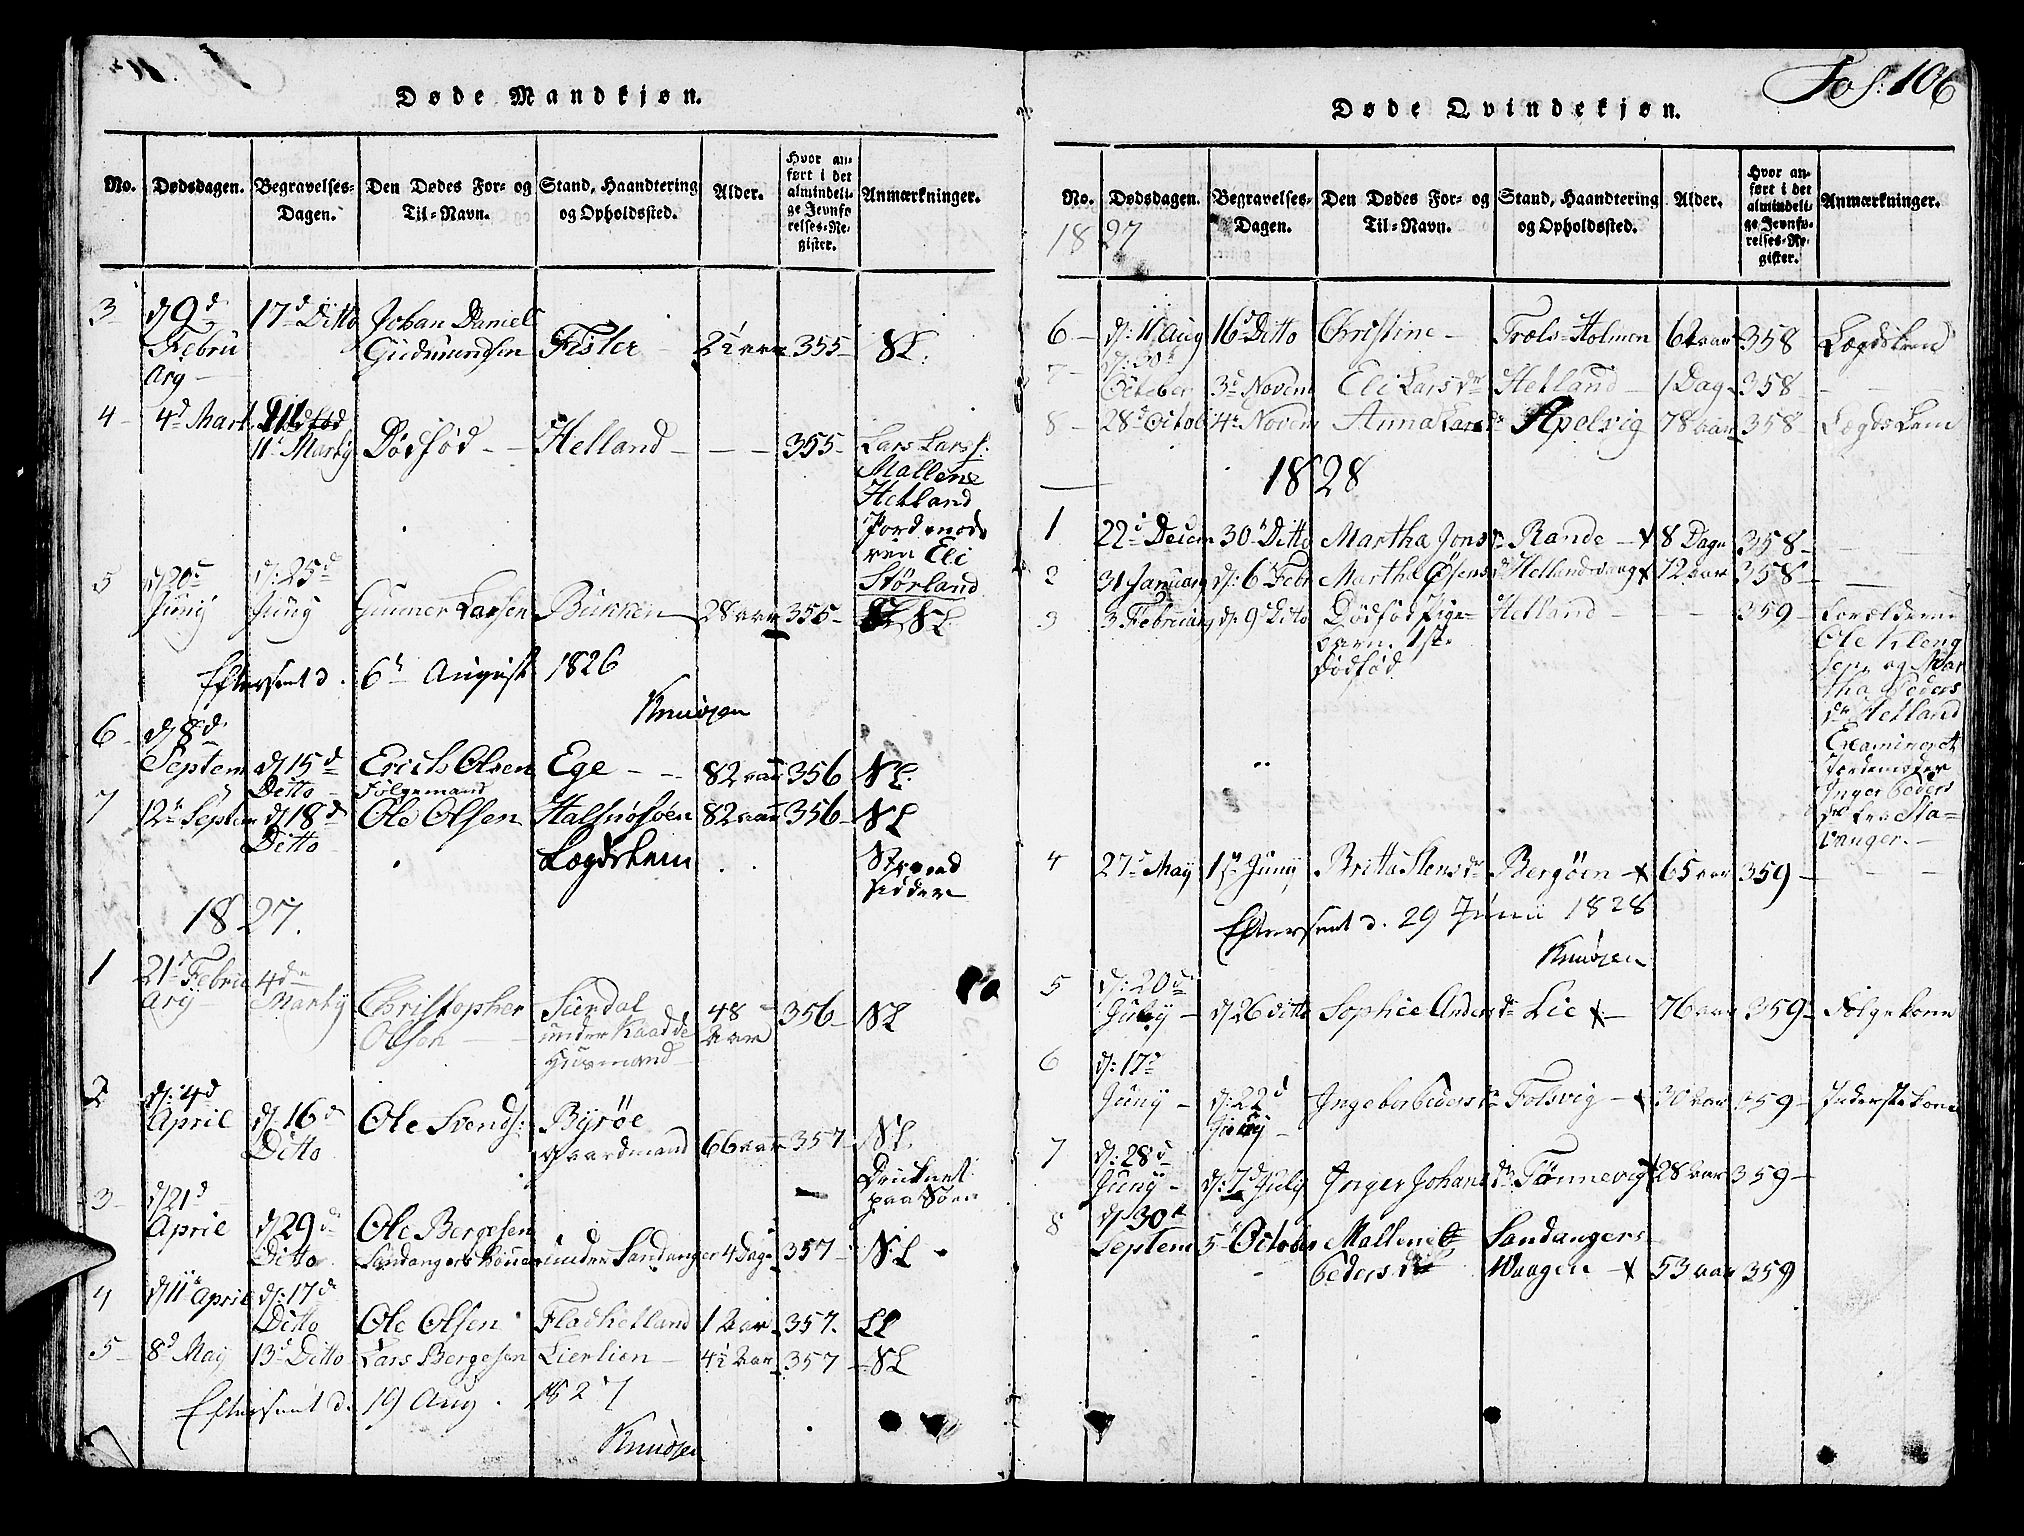 Døde Mandkjøn.
No. Dødsdagen. Begravelses-Dagen. Den Dødes For- og Til-Navn. Stand, Haandtering og Opholdssted. Alder. Hvor anført i det almindelige Jevnførelses-Register. Anmærkninger.
3 d 9d Februarg 17d Ditto Johan Daniel Gudmundsen Fisler 355 SL.
4 4d Mart 11 Marty Dødfød Helland 355 Lars Larss: Mallene Hetland Jordmoderen Eli Størland
5 d 20d Juny d: 25d Juny Gunner Larsen Bukken 28 aar 355 SL
Eftersent d. 6 August 1826
Knudsen
6 d 8d Septem d 15d Ditto Erich Olsen Følgemand Ege 82 aar 356 SL.
7 12 Septem d 18d Ditto Ole Olsen Halsnøsøen Lægdslem 82 aar 356 SL
1827.
1 21d Februarg 4de Marty Christopher Olsen Sundal under Kaadde Husmand 48 Aar 356 SL
2 d: 4d April d 16d Ditto Ole Svends: Byrøe Gaardmand 66 aar 357 SL. Druknet paa Søen
3 d 21d April d 29d Ditto Ole Bergesen under Sandanger 4 Dage 357 SL
4 d 11 April d: 17d Ditto Ole Olsen Fladhetland 1 Aar 357.
5 8d May 13d Ditto Lars Bergesen Lierlien 4½ Aar 357 SL
Eftersent d. 19 Aug. 1827
Knudsen
Fol: 106
Døde Qvindekjøn.
No. Dødsdagen. Begravelses-Dagen. Den Dødes For- og Til-Navn. Stand, Haandtering og Opholdssted. Alder. Hvor anført i det almindelige Jevnførelses-Register. Anmærkninger.
1827
6 d: 11 Aug 16d Ditto Christine Træls-Holmen 358 Lægdslem
7 d: 30 October 3d Novem Eli Larsdr Hetland 1 Dag 358
8 28d Octob 4 Novem Anna Larsdr Apelvig 78 aar 358 Lægdslem
1828
1 22d Decem 30 Ditto Martha Jonsdr Rande 8 Dage 358
2 31 January d: 6 Febr Martha Hellandsvang 12 aar 358
3 3 February d 9 Ditto Dødfød Pigebarn. Dødfød Hetland 359 Forældrene Ole Klengsen og Martha Pedersdr Hetland Examineret Jordemoder Inger Peders fra Stavanger.
4 27d May 1ste Juny Britta Stensdr Bergøen 65 aar 359
Eftersent d. 29 Junii 1828
Knudsen
5 d: 20d July d 26 ditto Sophie Andersdr Lie 76 aar 359 Følgekone
6 d: 17d Juny d: 22d Ingebor Pedersdr Folsvig 30 aar 359 Inderstekone
7 d: 28d Juny d: 7d July Inger Johansdr Tønnevig 28 aar 359
8 d 30d Septem 5 October Mallene Pedersdr Sandangers Waagen 53 aar 359